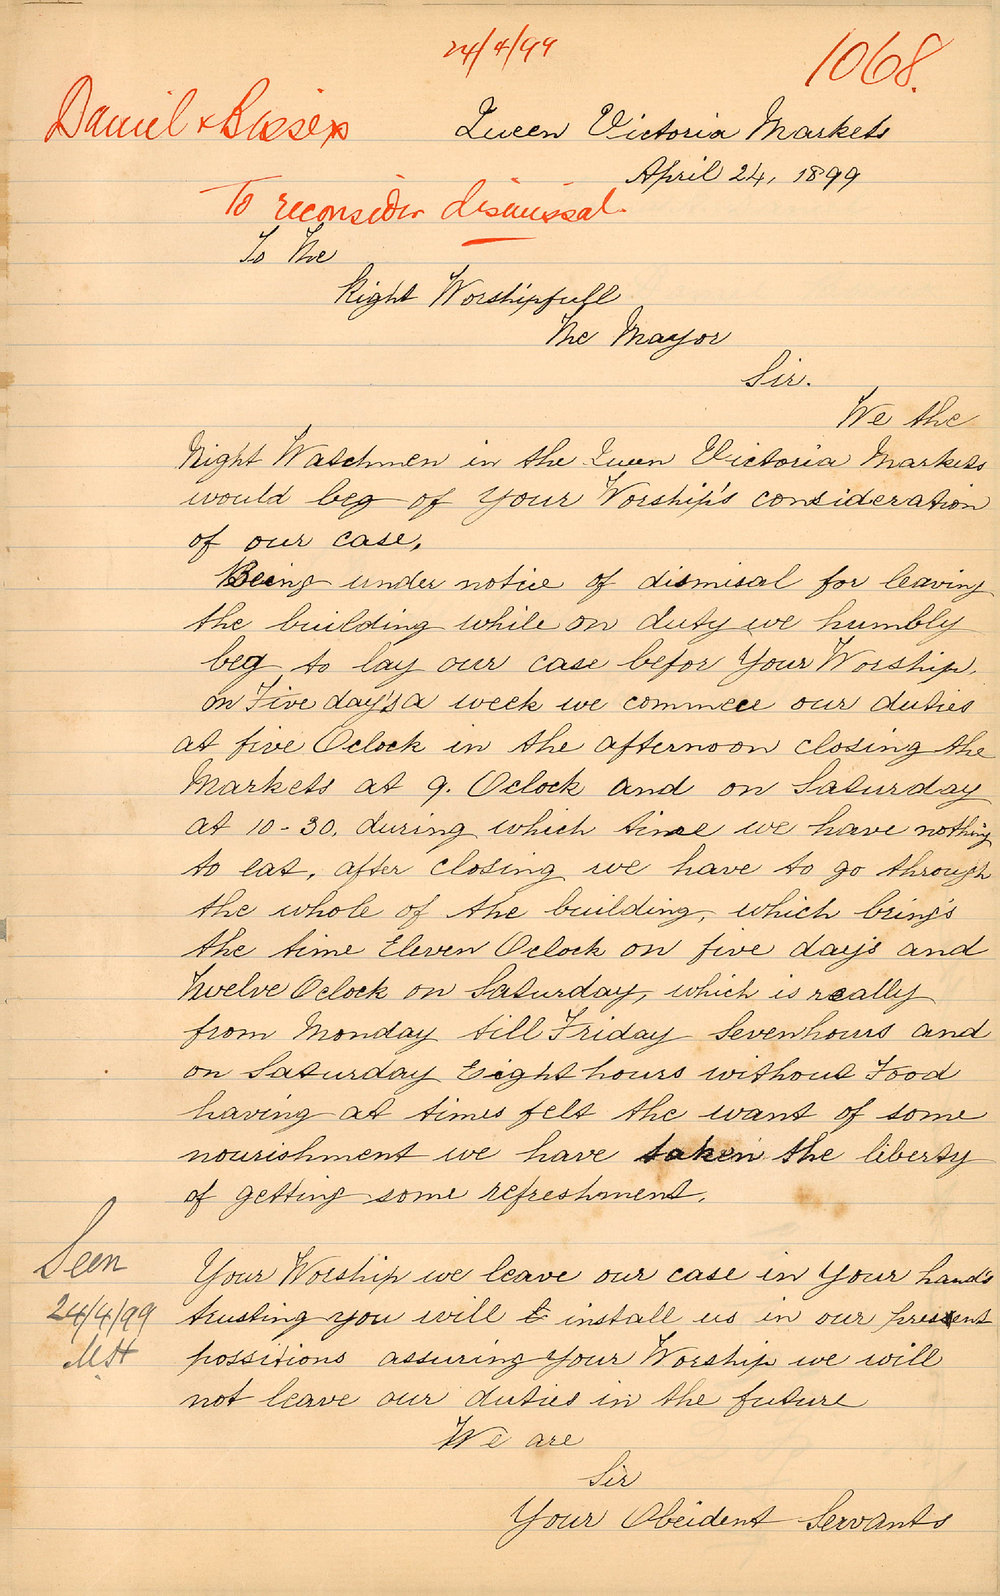 24/4/99
1068.
Daniel &
Queen Victoria Markets
April 24, 1899
To reconsider dismissal.
To The
Right Worshipfull
The Mayor
Sir.
We the
Night Watchmen in the Queen Victoria Markets
would beg of Your Worship's consideration
of our case,
Being under notice of dismisal for leaving
the building while on duty we humbly
beg to lay our case befor Your Worship.
on Five day's a week we commece our duties
at five Oclock in the afternoon closing the
Markets at 9. Oclock and on Saturday
at 10-30. during which time we have nothing
to eat, after closing we have to go through
the whole of the building, which bring's
the time Eleven Oclock on five day's and
Twelve Oclock on Saturday, which is really
from Monday till Friday Seven hours and
on Saturday Eight hours without Food
having at times felt the want of some
nourishment we have taken the liberty
of getting some refreshment.
Seen
24/4/99
MH
Your Worship we leave our case in Your hand's
trusting you will install us in our present
possitions assuring Your Worship we will
not leave our duties in the future
We are
Sir
Your Obeident Servants